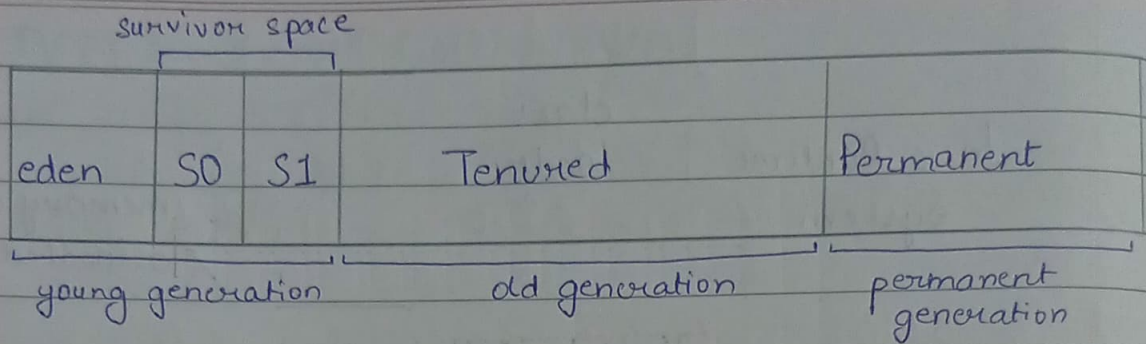 survivor space
eden S0 S1 Tenured Permanent
young generation old generation permanent
generation